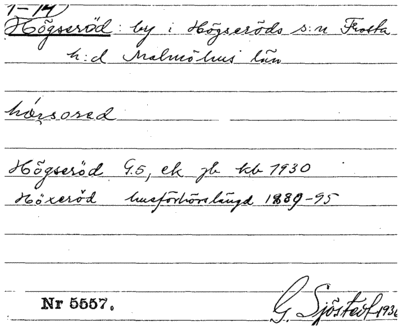 1-14
Högseröd : by i Högseröds s:n Frosta
h:d Malmöhus län
Högseröd G.5, ek jb kb 1930
Höxeröd husförhörslängd 1889-95
G. Sjöstedt 1936
Nr 5557.